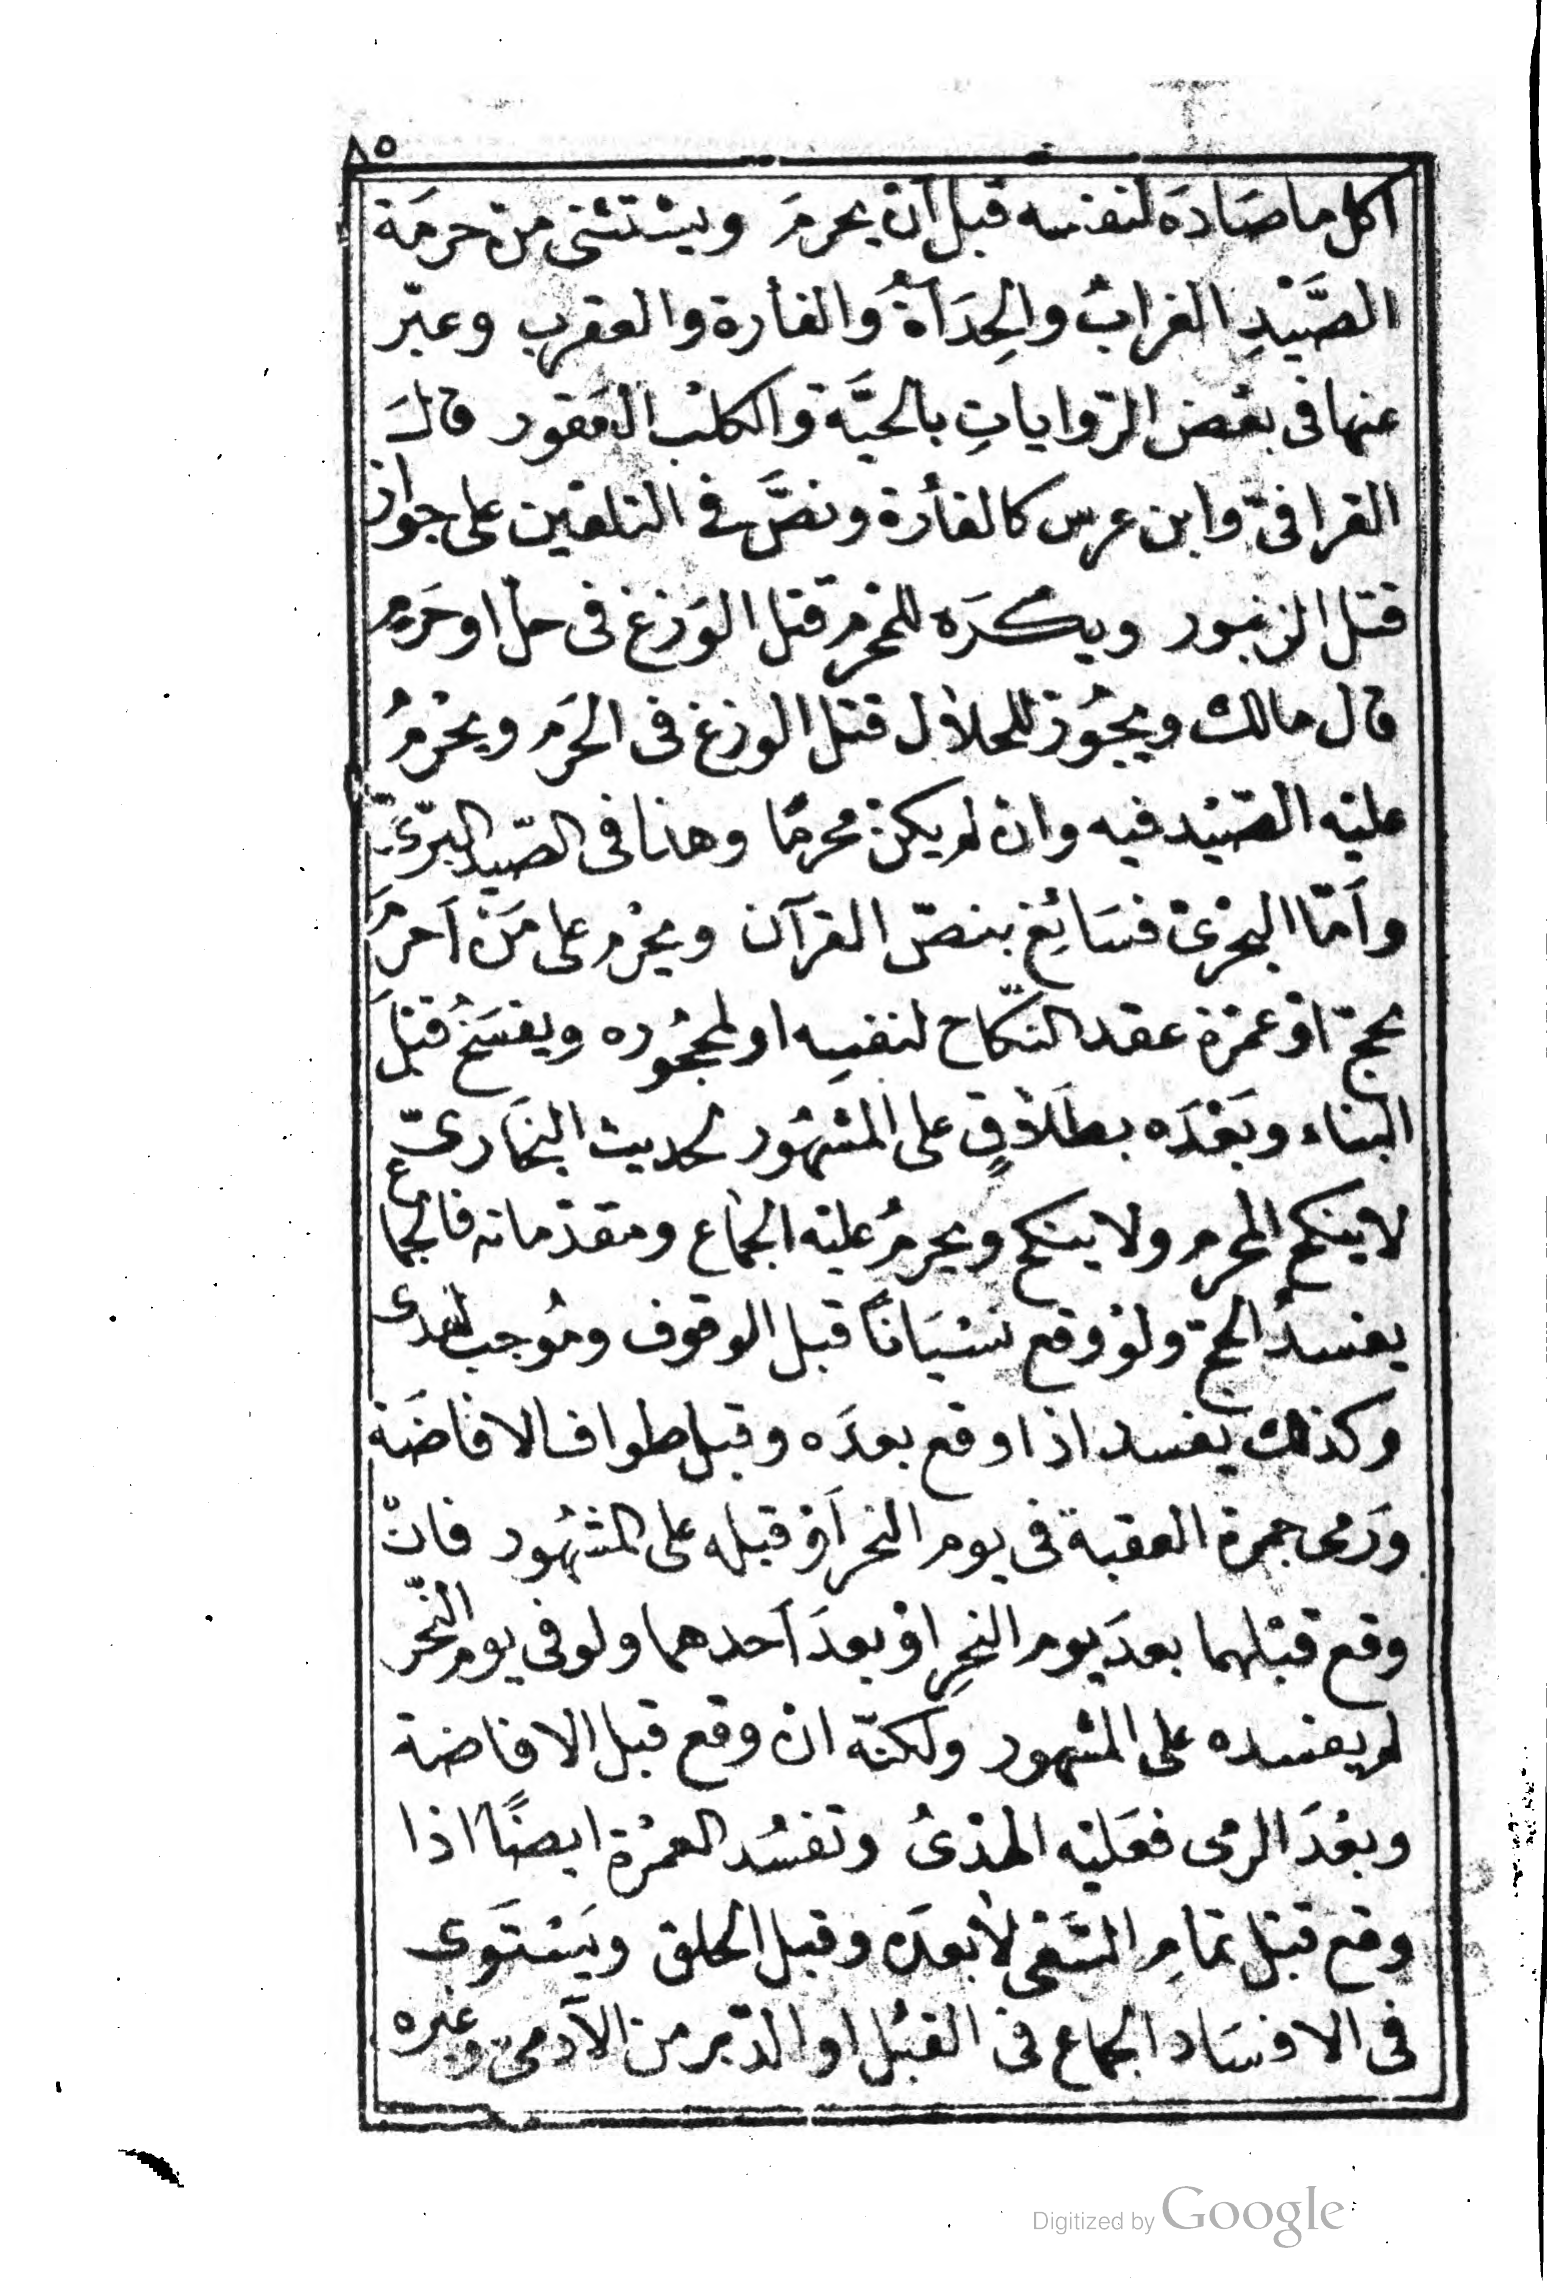 ٨٥
اكل ما صَادَه لنفسه قبل أن يحرمَ ويستثنى من حرمَة
الصَّيْدِ الغرابُ والحِدَأةُ والفأرة والعقرب وعبّر
عنها فى بعْض الرّواياتِ بالحيَّة والكلْب العَقور قالَ
القرافىّ وابن عرس كالفأرة ونصَّ فى التلقين على جواز
قتل الزنبور ويكرَه للمحْرم قتل الوَزغ فى حلّ او حَرَمٍ
قال مالك ويجُوز للحلال قتل الوزغ فى الحرَم ويحْرمُ
عليْه الصّيْد فيه وان لم يكنْ محرمًا وهذا فى الصّيد البرّىّ
وأمّا البحْرىْ فسَائِغ بنصّ القرآن ويحْرم على مَنْ أحرمَ
بحجّ اوْ عمْرة عقد النّكاح لنفسِه او لمحْجُوره ويفسَخُ قبْلَ
البناء وبَعْدَه بطَلاقٍ على المشهُور لحديث البخَارىّ
لا ينكح المحرم ولا ينكح ويحرمُ عليْه الجمَاع ومقدّماته فالجماع
يفسدُ الحجّ ولوْ وقع نسْيَانًا قبل الوقوف ومُوجب لهدى
وكذلك يفسد اذا وقع بعدَه وقبل طواف الافاضَة
ورَمى جمرة العقبة فى يوم النحر أوْ قبله على المشهُور فانّ
وقع قبْلهما بعدَ يوم النحرِ اوْ بعدَ أحدهما ولو فى يوم النّحر
لم يفسده على المشهور ولكنّه ان وقع قبل الافاضة
وبعْدَ الرمى فعَليْه الهدْىُ وتفسُد العمْرة ايضًا اذا
وقع قبْل تمامِ السَّعْى لا بعدَه وقبل الحلق ويَسْتَوى
فى الافسَاد الجماع فى القبُل او الدّبر من الآدمىّ وغيره
Digitized by Google